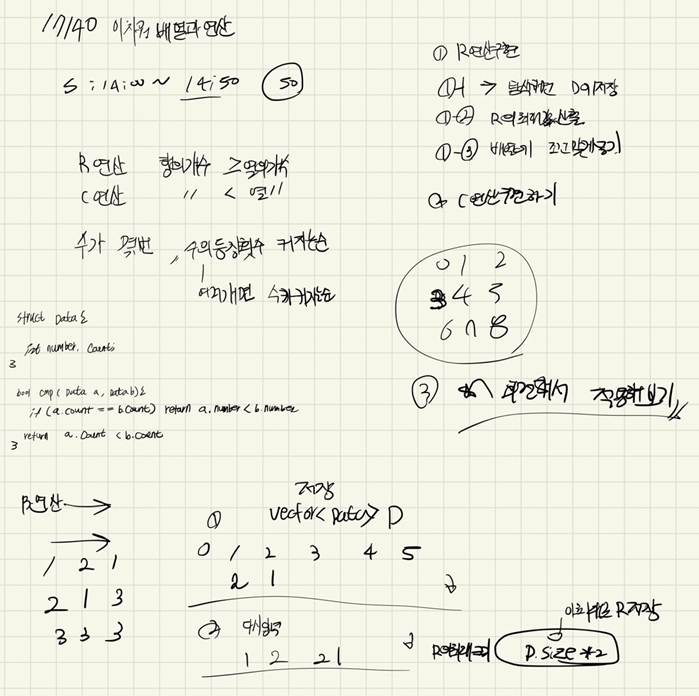 17140 이차원 배열과 연산
S : 14:00 ~ 14:50 50
R연산 행의개수 ≥ 열의개수
C연산 〃 < 열〃
수가 몇번, 수의등장횟수 커지는순
여러개면 수가커지는순
struct Data{
int number, count;
}
bool cmp(Data a, Data b){
if (a.count == b.count) return a.number < b.number
return a.count < b.count
}
① R연산구현
①-1 → 탐색하면 D에저장
①-② R의최대값산출
①-③ 배열에
② C연산구현하기
0 1 2
3 4 5
6 7 8
③ 적용해보기
R연산 →
1 2 1
2 1 3
3 3 3
저장
① vector<Data> D
0 1 2 3 4 5
2 1
② 다시입력
1 2 2 1
R의최대크기 D.size*2
이후 R저장